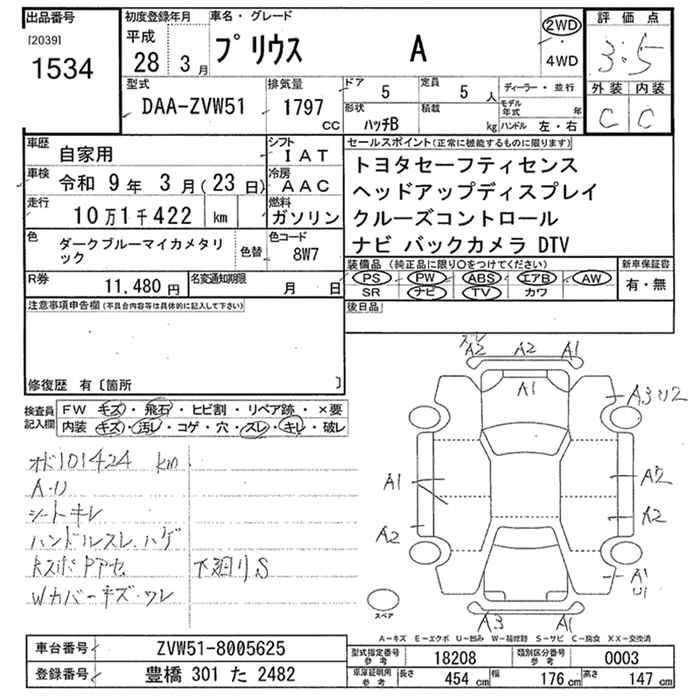 出品番号
[2039]
1534
初度登録年月
平成
28 3月
車名・グレード
プリウス A
2WD
4WD
評価点
3.5
外装 内装
C C
型式
DAA-ZVW51
排気量
1797
CC
ドア 5
定員 5 人
形状
ハッチB
積載
kg
ディーラー・並行
モデル年式 年
ハンドル 左・右
車歴
自家用
シフト
IAT
車検
令和 9年 3月(23日)
冷房
AAC
走行
10万1千422 km
燃料
ガソリン
色
ダークブルーマイカメタリック
色替
色コード
8W7
R券
11,480 円
名変通知期限
月 日
セールスポイント(正常に機能するものに限ります)
トヨタセーフティセンス
ヘッドアップディスプレイ
クルーズコントロール
ナビ バックカメラ DTV
装備品(純正品に限り○をつけてください)
新車保証書
PS PW ABS エアB AW
SR ナビ TV カワ
有・無
注意事項申告欄(不具合内容等は具体的に記入して下さい)
後日品
修復歴 有〔箇所 〕
検査員記入欄
FW キズ・飛石・ヒビ割・リペア跡・×要
内装 キズ・汚レ・コゲ・穴・スレ・キレ・破レ
オド101424 km
A-U
シートキレ
ハンドルスレ、ハゲ
下廻りS
Wカバーキズ・ワレ
ズレ
A2 A2 A1
A1
A3U2
A1
A2
A2
A2
A1
U1
A3 A1
スペア
A-キズ E-エクボ U-凹み W-補修跡 S-サビ C-腐食 XX-交換済
車台番号
ZVW51-8005625
登録番号
豊橋 301 た 2482
型式指定番号
参考
18208
類別区分番号
参考
0003
車庫証明用
参考
長さ 454 cm
幅 176 cm
高さ 147 cm